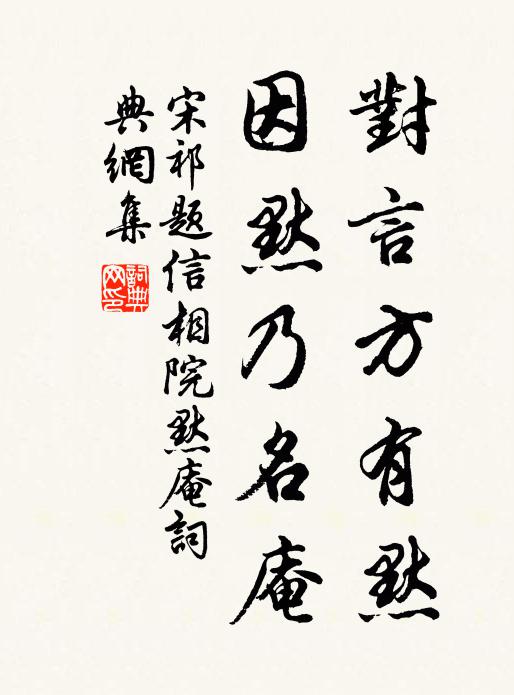 對言方有默
因默乃名庵
宋祁題信相院默庵詞
典網集
詞典
网印